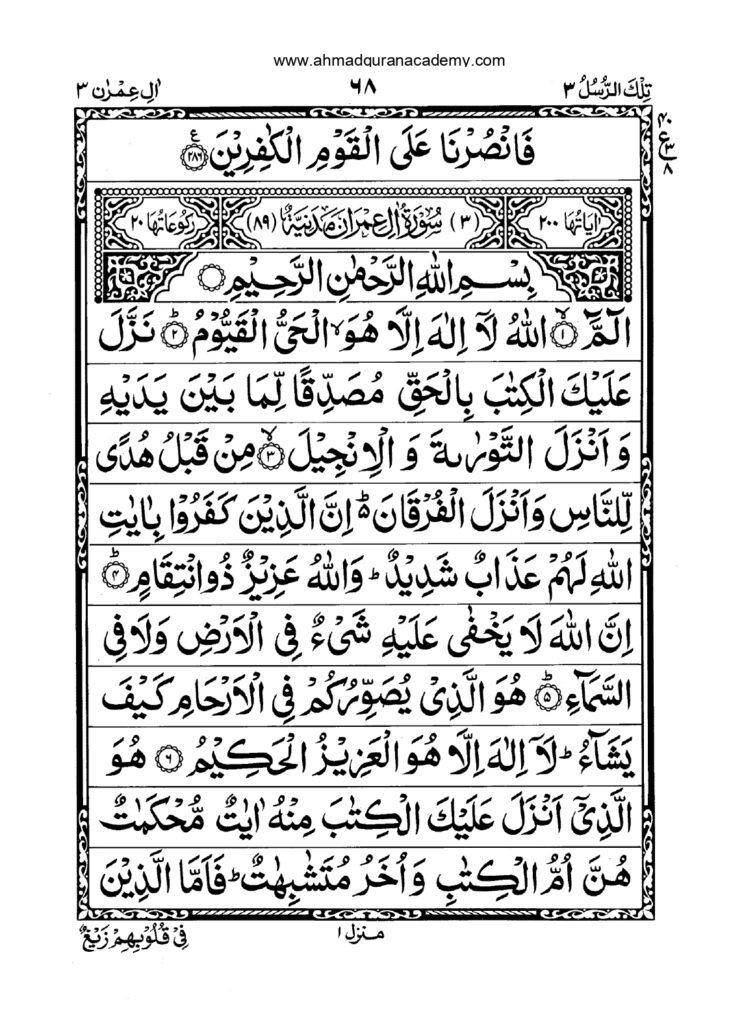 www.ahmadquranacademy.com
تِلْكَ الرُّسُلُ ٣ ٦٨ اٰلِ عِمْرٰن ٣
فَانْصُرْنَا عَلَى الْقَوْمِ الْكٰفِرِيْنَ ﴿٢٨٦﴾ ع
٤٠ ع ٣ ٨
اٰيَاتُهَا ٢٠٠ (٣) سُوْرَةُ اٰلِ عِمْرَانَ مَدَنِيَّةٌ (٨٩) رُكُوْعَاتُهَا ٢٠
بِسْمِ اللّٰهِ الرَّحْمٰنِ الرَّحِيْمِ
الٓمَّٓ ۙ﴿١﴾ اللّٰهُ لَآ اِلٰهَ اِلَّا هُوَ ۙ الْحَيُّ الْقَيُّوْمُ ؕ﴿٢﴾ نَزَّلَ
عَلَيْكَ الْكِتٰبَ بِالْحَقِّ مُصَدِّقًا لِّمَا بَيْنَ يَدَيْهِ
وَ اَنْزَلَ التَّوْرٰىةَ وَ الْاِنْجِيْلَ ۙ﴿٣﴾ مِنْ قَبْلُ هُدًى
لِّلنَّاسِ وَ اَنْزَلَ الْفُرْقَانَ ؕ۬ اِنَّ الَّذِيْنَ كَفَرُوْا بِاٰيٰتِ
اللّٰهِ لَهُمْ عَذَابٌ شَدِيْدٌ ؕ وَاللّٰهُ عَزِيْزٌ ذُو انْتِقَامٍ ؕ﴿٤﴾
اِنَّ اللّٰهَ لَا يَخْفٰى عَلَيْهِ شَيْءٌ فِي الْاَرْضِ وَلَا فِي
السَّمَآءِ ؕ﴿٥﴾ هُوَ الَّذِيْ يُصَوِّرُكُمْ فِي الْاَرْحَامِ كَيْفَ
يَشَآءُ ؕ لَآ اِلٰهَ اِلَّا هُوَ الْعَزِيْزُ الْحَكِيْمُ ﴿٦﴾ هُوَ
الَّذِيْٓ اَنْزَلَ عَلَيْكَ الْكِتٰبَ مِنْهُ اٰيٰتٌ مُّحْكَمٰتٌ
هُنَّ اُمُّ الْكِتٰبِ وَ اُخَرُ مُتَشٰبِهٰتٌ ؕ فَاَمَّا الَّذِيْنَ
منزل ١
فِيْ قُلُوْبِهِمْ زَيْغٌ